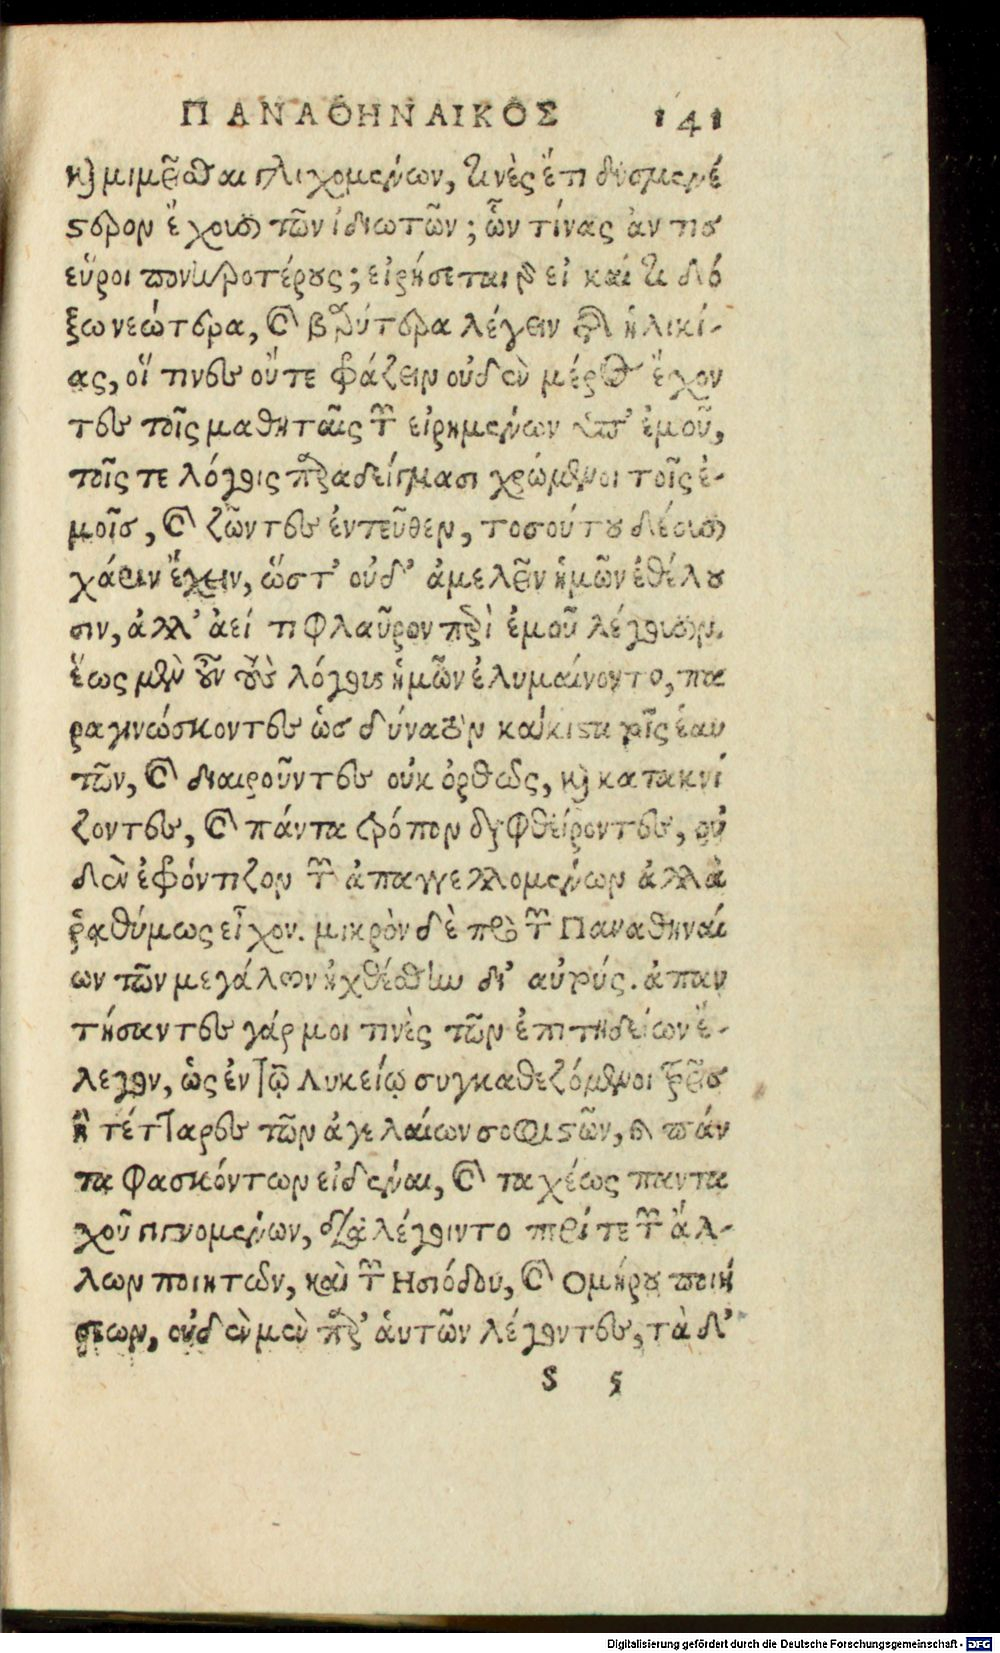 ΠΑΝΑΘΗΝΑΙΚΟΣ 141
καὶ μιμεῖσθαι γλιχομένων, τινὲς ἔτι δυσμενέ
στερον ἔχουσι τῶν ἰδιωτῶν; ὧν τίνας ἄν τις
εὕροι πονηροτέρους; εἰρήσεται γὰρ εἰ καί τι δό
ξω νεώτερα, καὶ βαρύτερα λέγειν τῆς ἡλικί-
ας, οἵ τινες οὔτε φράζειν οὐδὲν μέρος ἔχον
τες τοῖς μαθηταῖς τῶν εἰρημένων ὑπ' ἐμοῦ,
τοῖς τε λόγοις παραδείγμασι χρώμενοι τοῖς ἐ-
μοῖς, καὶ ζῶντες ἐντεῦθεν, τοσούτου δέουσι
χάριν ἔχειν, ὥστ' οὐδ' ἀμελεῖν ἡμῶν ἐθέλου
σιν, ἀλλ' ἀεί τι φλαῦρον περὶ ἐμοῦ λέγουσιν.
ἕως μὲν οὖν τοὺς λόγους ἡμῶν ἐλυμαίνοντο, πα
ραγινώσκοντες ὡς δύναιτον κάκιστα τοῖς ἑαυ
τῶν, καὶ διαιροῦντες οὐκ ὀρθῶς, καὶ κατακνί
ζοντες, καὶ πάντα τρόπον διαφθείροντες, οὐ
δὲν ἐφρόντιζον τῶν ἀπαγγελλομένων ἀλλὰ
ῥαθύμως εἶχον. μικρὸν δὲ πρὸ τῶν Παναθηναί
ων τῶν μεγάλων ἠχθέσθην δι' αὐτούς. ἀπαν
τήσαντες γάρ μοι τινὲς τῶν ἐπιτηδείων ἔ-
λεγον, ὡς ἐν τῷ Λυκείῳ συγκαθεζόμενοι τρεῖς
ἢ τέτταρες τῶν ἀγελαίων σοφιστῶν, καὶ πάν
τα φασκόντων εἰδέναι, καὶ ταχέως παντα
χοῦ γιγνομένων, διαλέγοιντο περί τε τῶν ἄλ-
λων ποιητῶν, καὶ τῶν Ησιόδου, καὶ Ομήρου ποιή
σεων, οὐδὲν μὲν παρ' αὑτῶν λέγοντες, τὰ δ'
S 5
Digitalisierung gefördert durch die Deutsche Forschungsgemeinschaft - DFG